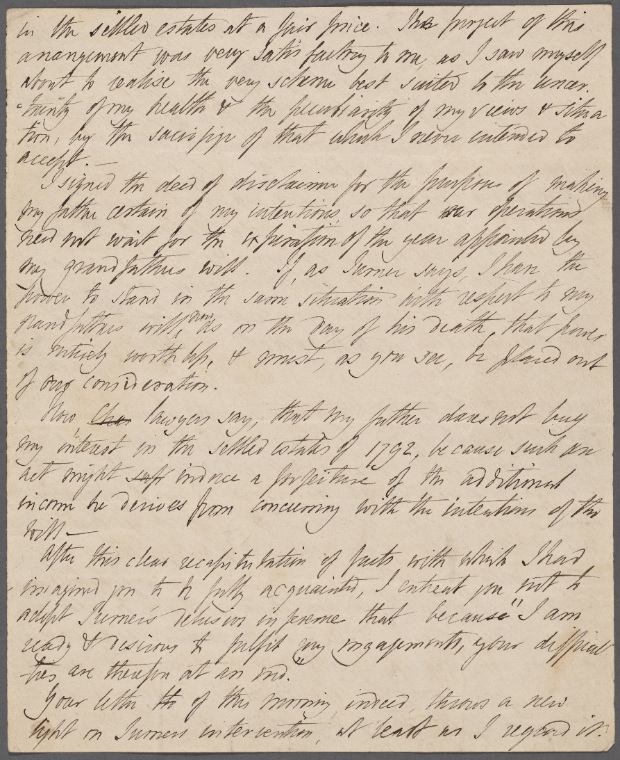 in the settled estates at a fair price. The project of this
arrangement was very satisfactory to me, as I saw myself
about to realise the very scheme best suited to the uncer-
tainty of my health & the peculiarity of my views & situa
tion, by the sacrifice of that which I never intended to
accept.—
I signed the deed of disclaimer for the purpose of making
my father certain of my intentions, so that our operations
need not wait for the expiration of the year appointed by
my grandfathers will. If, as Turner says, I have the
power to stand in the same situation with respect to my
grandfathers will, now as on the day of his death, that power
is entirely worthless, & must, as you see, be placed out
of our consideration.
Now lawyers say, that my father dares not buy
my interest in the settled estates of 1792, because such an
act might induce a forfeiture of the additional
income he derives from concurring with the intentions of the
will—
After this clear recapitulation of facts with which I had
imagined you to be fully acquainted, I entreat you not to
adopt Turner's delusive inference that because "I am
ready & desirous to fulfil my engagements, your difficul
ties are therefore at an end."
Your letter of this morning indeed, throws a new
light on Turners intervention, at least as I regard it.